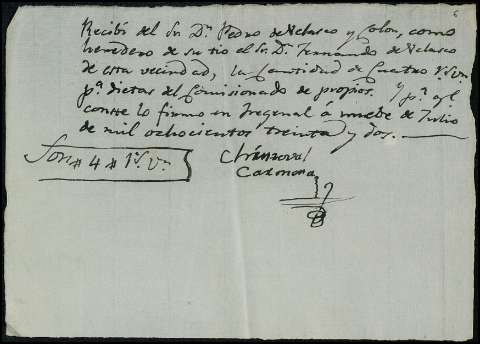 6
Recibí del Sr. Dn. Pedro de Velasco y Colon, como
heredero de su tio el Sr. Dn. Fernando de Velasco
de esta vecindad, la Cantidad de Cuatro rs. von
pa. dietas del Comisionado de propios. Y pa. q.e
conste lo firmo en Fregenal á nuebe de Julio
de mil ochocientos treinta y dos.
Son # 4 # rs. vn.
Carmona